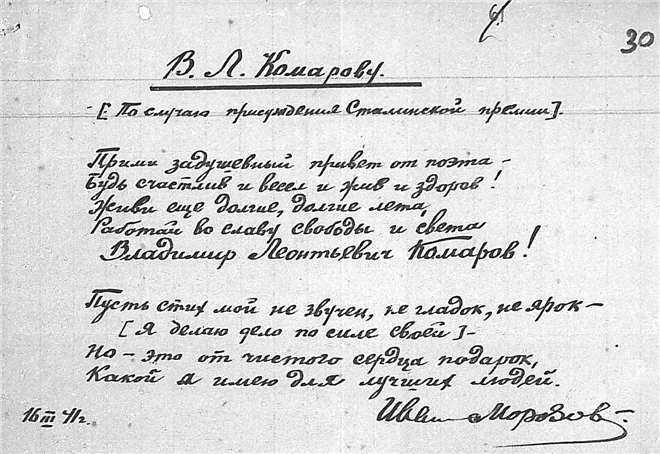 30
В. Л. Комарову.
[По случаю присуждения Сталинской премии].
Прими задушевный привет от поэта –
Будь счастлив и весел и жив и здоров!
Живи еще долгие, долгие лета,
Работай во славу свободы и света
Владимир Леонтьевич Комаров!
Пусть стих мой не звучен, не гладок, не ярок –
[Я делаю дело по силе своей] –
Но – это от чистого сердца подарок,
Какой я имею для лучших людей.
16 III 41 г.
Иван Морозов –